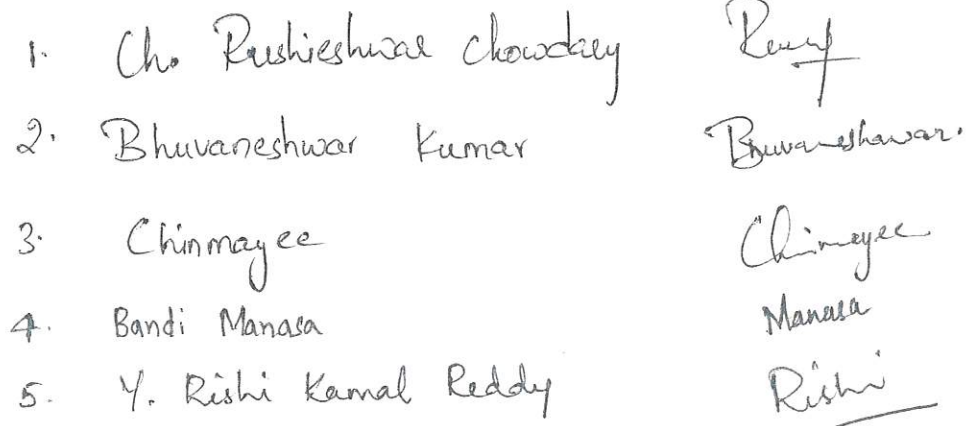 1. Ch. Rushieshwar Chowdary
2. Bhuvaneshwar Kumar Bhuvaneshawar.
3. Chinmayee Chinmayee
4. Bandi Manasa Manasa
5. Y. Rishi Kamal Reddy Rishi